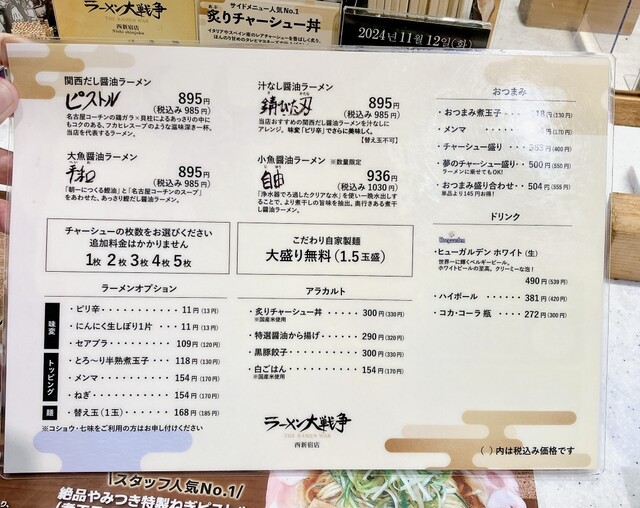 ラーメン大戦争
THE RAMEN WAR
西新宿店
Nishi-shinjuku
サイドメニュー人気No.1
炙りチャーシュー丼
イタリアやスペイン産のレアチャーシューを香ばしく炙り、
2024年11月12日(火)
関西だし醤油ラーメン
ピストル 895円
(税込み 985円)
名古屋コーチンの鶏ガラ×貝柱によるあっさりの中に
もコクのある、フカヒレスープのような滋味深き一杯。
当店を代表するラーメン。
汁なし醤油ラーメン
錆びた刃 895円
(税込み 985円)
当店おすすめの関西だし醤油ラーメンを汁なしに
アレンジ。味変「ピリ辛」でさらに美味しく。
【替え玉不可】
大魚醤油ラーメン
平和 895円
(税込み 985円)
「朝一につくる鰹油」と「名古屋コーチンのスープ」
をあわせた、あっさり鰹だし醤油ラーメン。
小魚醤油ラーメン ※数量限定
自由 936円
(税込み 1030円)
「浄水器でろ過したクリアな水」を使い一晩水出しす
ることで、より煮干しの旨味を抽出。奥行きある煮干
し醤油ラーメン。
チャーシューの枚数をお選びください
追加料金はかかりません
1枚 2枚 3枚 4枚 5枚
こだわり自家製麺
大盛り無料(1.5玉盛)
ラーメンオプション
味変
・ピリ辛・・・・・・・・・・11円(13円)
・にんにく生しぼり1片・・・11円(13円)
・セアブラ・・・・・・・・109円(120円)
トッピング
・とろ〜り半熟煮玉子・・・118円(130円)
・メンマ・・・・・・・・・154円(170円)
・ねぎ・・・・・・・・・・154円(170円)
麺
・替え玉(1玉)・・・・・・168円(185円)
※コショウ・七味をご利用の方はお申し付けください
アラカルト
・炙りチャーシュー丼・・・300円(330円)
※国産米使用
・特選醤油から揚げ・・・・290円(320円)
・黒豚餃子・・・・・・・・300円(330円)
・白ごはん・・・・・・・・154円(170円)
※国産米使用
ラーメン大戦争
THE RAMEN WAR
西新宿店
おつまみ
・おつまみ煮玉子・・・・118円(130円)
・メンマ・・・・円(170円)
・チャーシュー盛り・・・円(400円)
・夢のチャーシュー盛り・・500円(550円)
ラーメンに乗せてもOK!
・おつまみ盛り合わせ・・504円(555円)
単品より145円お得!
ドリンク
Hoegaarden
・ヒューガルデン ホワイト(生)
世界一に輝くベルギービール。
ホワイトビールの至高。クリーミーな泡!
490円(539円)
・ハイボール・・・・・・381円(420円)
・コカ・コーラ 瓶・・・・272円(300円)
( )内は税込み価格です
\スタッフ人気No.1/
絶品やみつき特製ねぎピストル